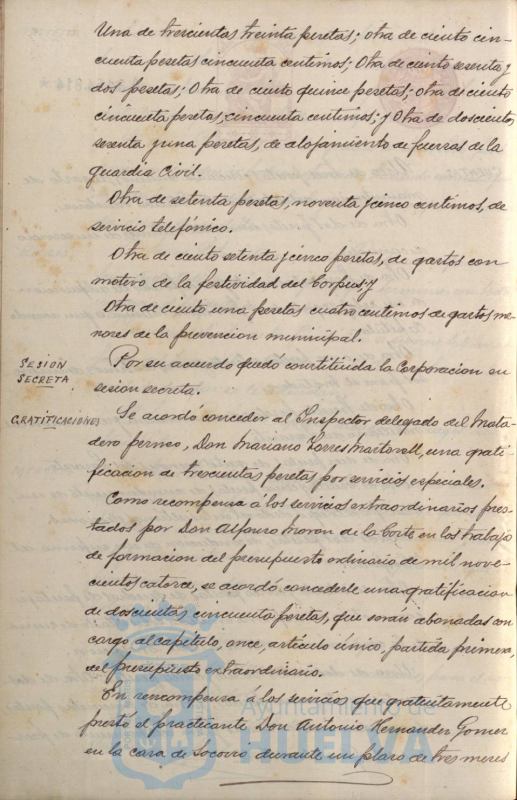 Una de trescientas treinta pesetas; otra de ciento cin-
cuenta pesetas cincuenta centimos; Otra de ciento sesenta y
dos pesetas; Otra de ciento quince pesetas; otra de ciento
cincuenta pesetas, cincuenta centimos; y Otra de doscientas
sesenta y una pesetas, de alojamiento de fuerzas de la
guardia Civil.
Otra de setenta pesetas, noventa y cinco centimos, de
servicio telefónico.
Otra de ciento setenta y cinco pesetas, de gastos con
motivo de la festividad del Corpus; y
Otra de ciento una pesetas cuatro centimos de gastos me-
nores de la prevencion municipal.
SESION
SECRETA
Por su acuerdo quedó constituida la Corporacion en
sesion secreta.
GRATIFICACIONES
Se acordó conceder al Inspector delegado del Mata-
dero ferneo, Don Mariano Torres Martorell, una grati-
ficacion de trescientas pesetas por servicios especiales.
Como recompensa á los servicios extraordinarios pres-
tados por Don Alfonso Moron de la Corte en los trabajo
de formacion del presupuesto ordinario de mil nove-
cientos catorce, se acordó concederle una gratificacion
de doscientas cincuenta pesetas, que serán abonadas con
cargo al capítulo, once, artículo único, partida primera,
del presupuesto extraordinario.
En recompensa á los servicios que gratuitamente
prestó el practicante Don Antonio Hernandez Gomez
en la casa de Socorro durante un plazo de tres meses
Ayuntamiento de
HUELVA